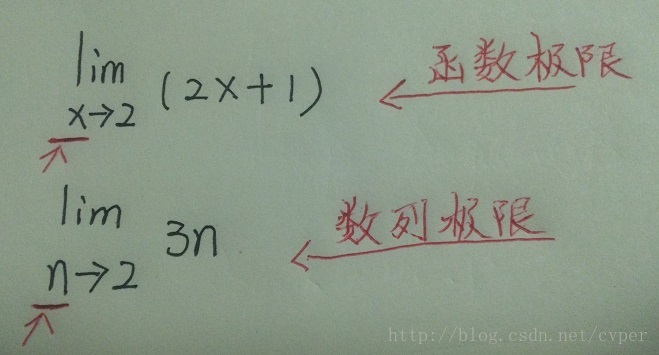 lim (2x+1) 函数极限
x→2
lim 3n 数列极限
n→2
http://blog.csdn.net/cvper